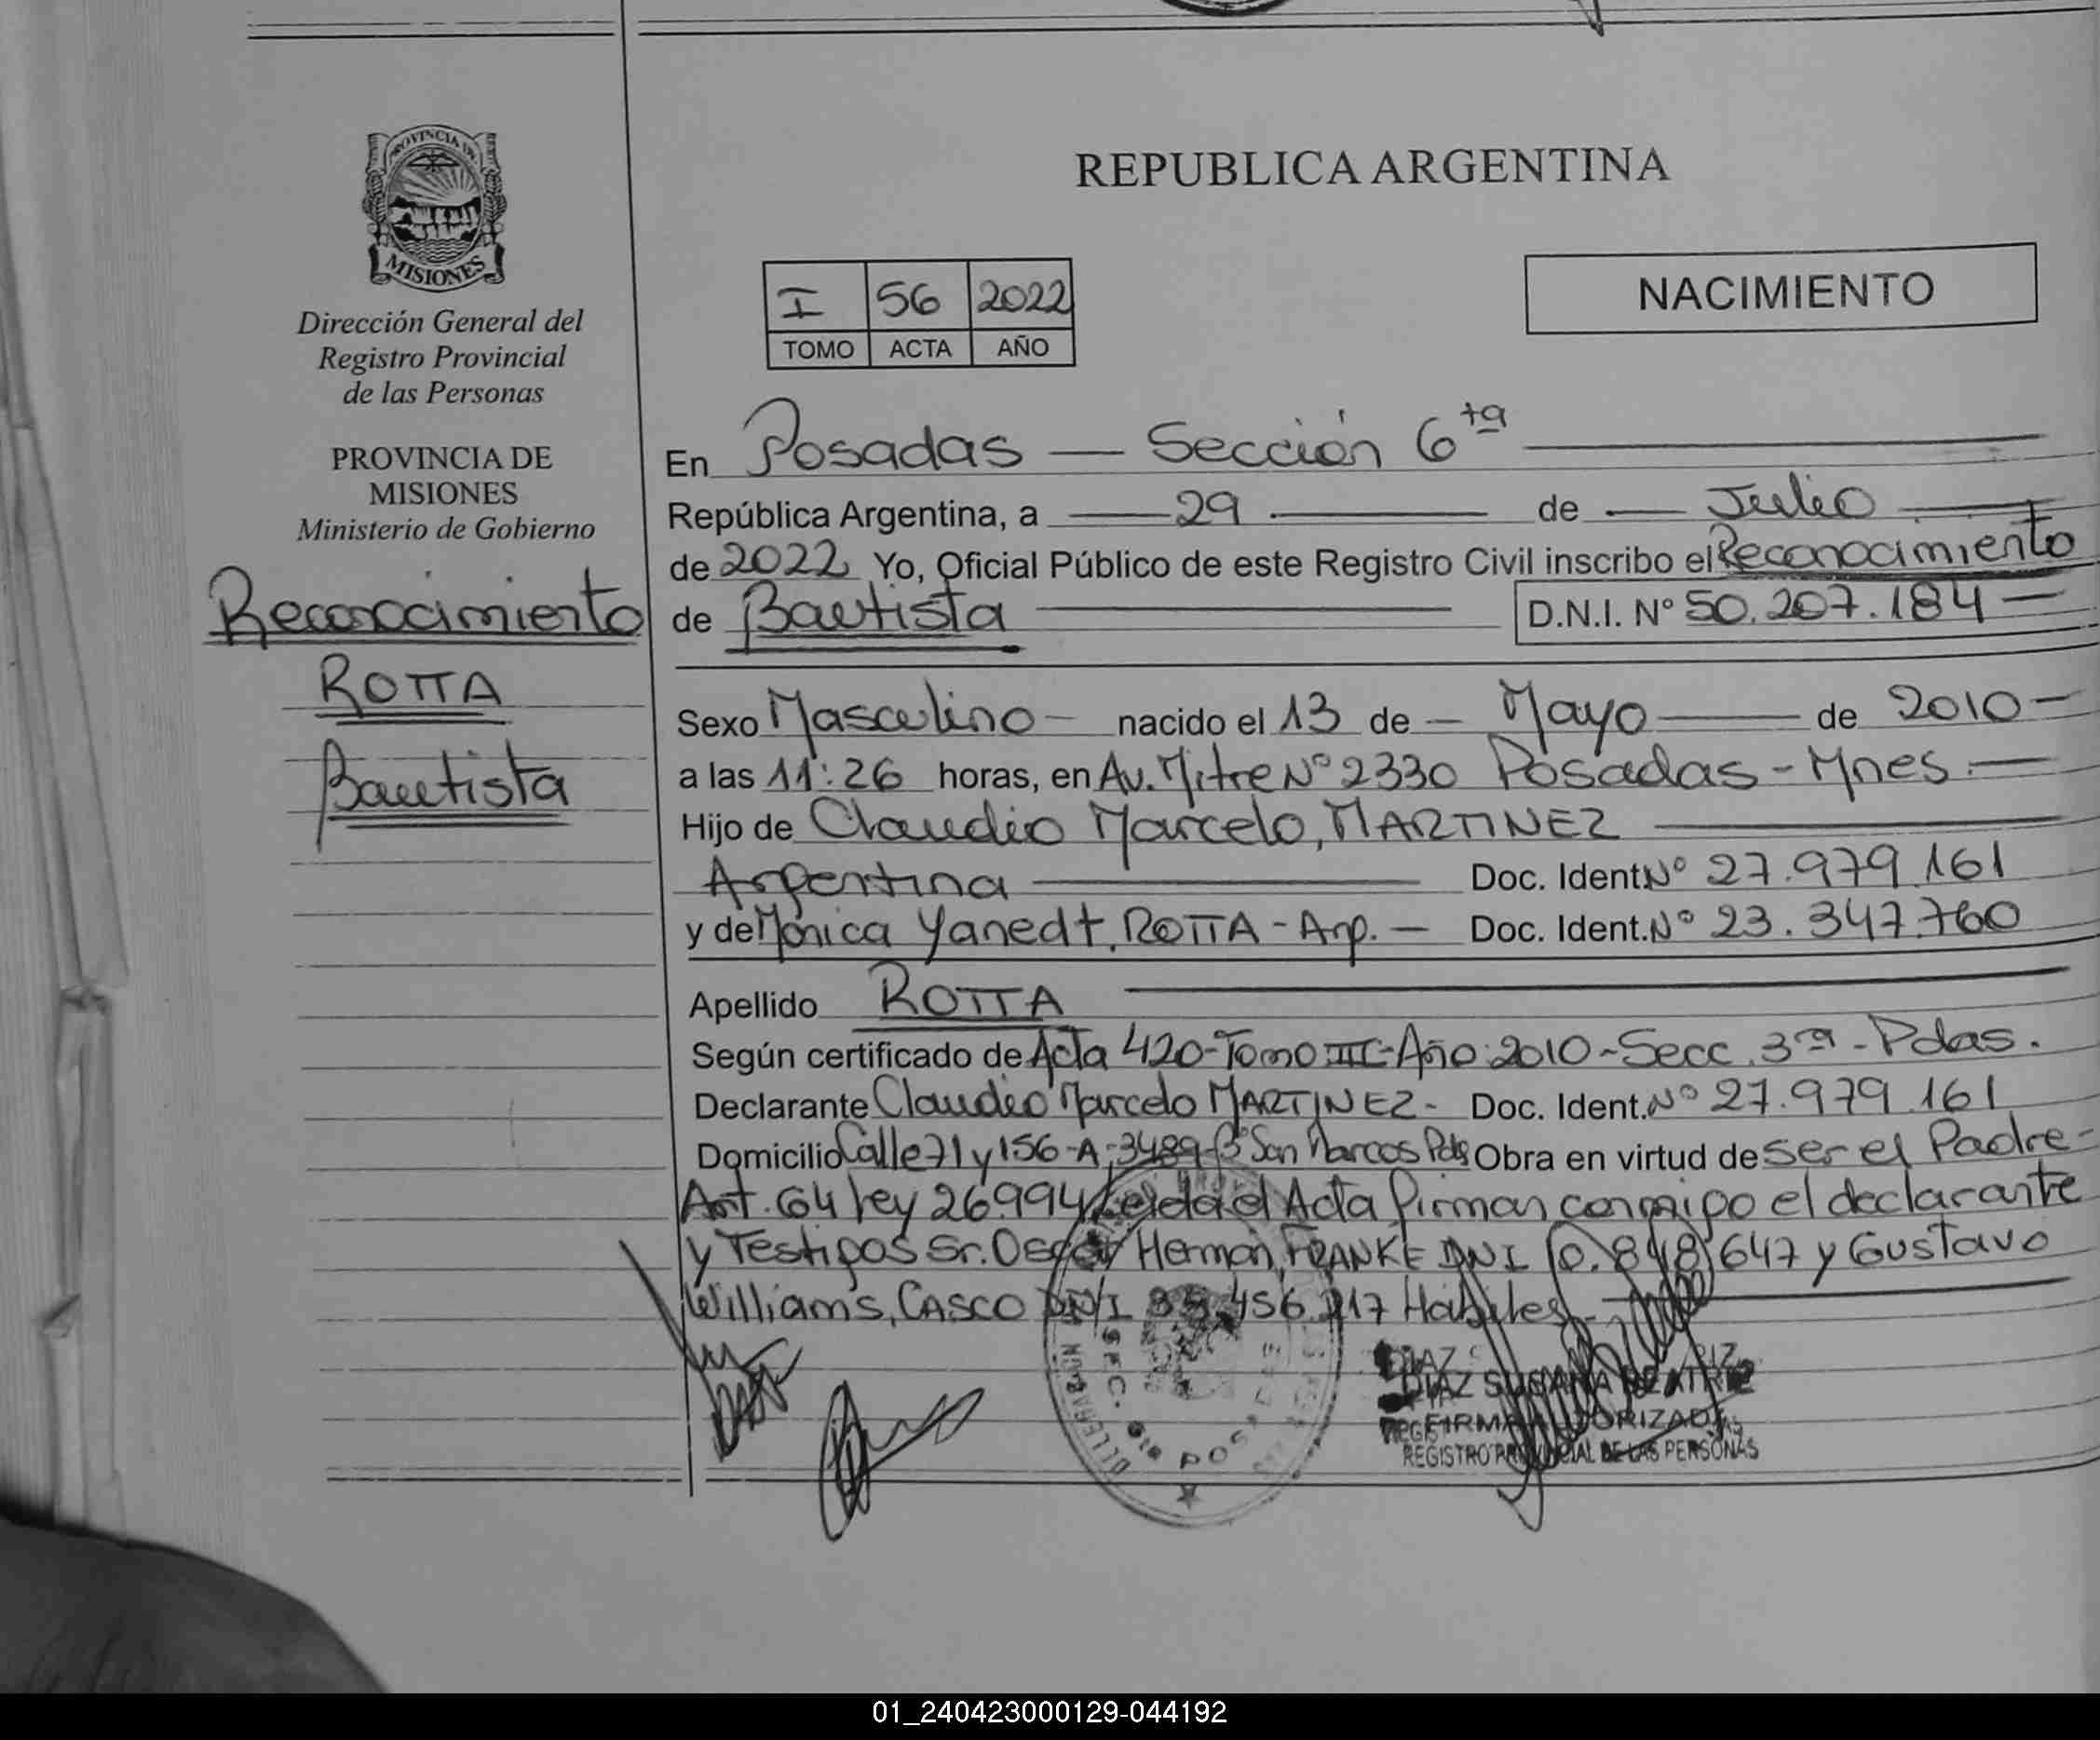 REPUBLICA ARGENTINA
PROVINCIA DE
MISIONES
Dirección General del
Registro Provincial
de las Personas
PROVINCIA DE
MISIONES
Ministerio de Gobierno
Reconocimiento
ROTTA
Bautista
I 56 2022
TOMO ACTA AÑO
NACIMIENTO
En Posadas — Sección 6ta
República Argentina, a 29 de Julio
de 2022 Yo, Oficial Público de este Registro Civil inscribo el Reconocimiento
de Bautista D.N.I. N° 50.207.184
Sexo Masculino nacido el 13 de Mayo de 2010
a las 11:26 horas, en Av. Mitre N° 2330 Posadas - Mnes.
Hijo de Claudio Marcelo, MARTINEZ
Argentina Doc. Ident. N° 27.979.161
y de Mónica Yanedt, ROTTA - Arg. Doc. Ident. N° 23.347.760
Apellido ROTTA
Según certificado de Acta 420-Tomo III-Año 2010-Secc. 3ra - Pdas.
Declarante Claudio Marcelo MARTINEZ - Doc. Ident. N° 27.979.161
Domicilio Calle 71 y 156-A-3489-B° San Marcos Pds Obra en virtud de ser el Padre-
Art. 64 Ley 26.994 Leída el Acta firman conmigo el declarante
y Testigos Sr. Oscar Herman, FRANKE DNI 10.848.647 y Gustavo
Williams, CASCO DNI 456.217 Hábiles
DIAZ SUSANA BEATRIZ
FIRMA AUTORIZADA
REGISTRO PROVINCIAL DE LAS PERSONAS
SEC. 6ta POSADAS
01_240423000129-044192